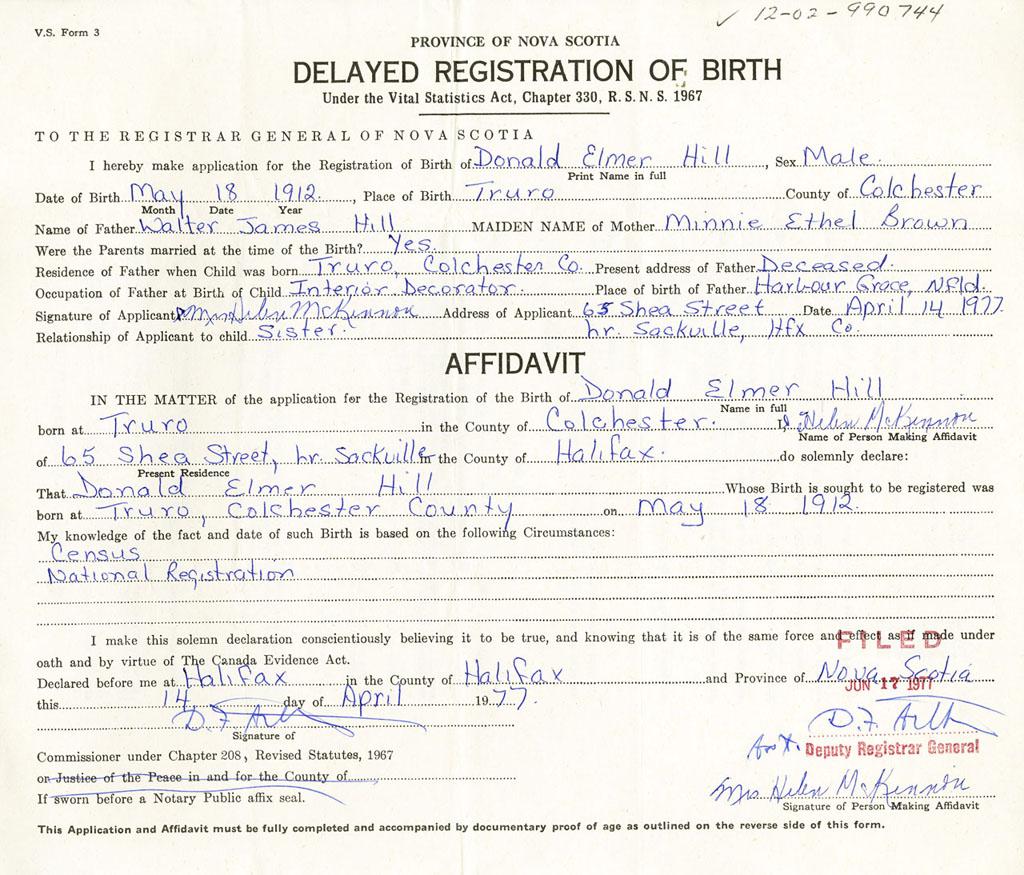 ✓ 12-02-990744
V.S. Form 3
PROVINCE OF NOVA SCOTIA
DELAYED REGISTRATION OF BIRTH
Under the Vital Statistics Act, Chapter 330, R. S. N. S. 1967
TO THE REGISTRAR GENERAL OF NOVA SCOTIA
I hereby make application for the Registration of Birth of Donald Elmer Hill, Sex Male.
Print Name in full
Date of Birth May 18 1912., Place of Birth Truro County of Colchester
Month Date Year
Name of Father Walter James Hill MAIDEN NAME of Mother Minnie Ethel Brown
Were the Parents married at the time of the Birth? Yes.
Residence of Father when Child was born Truro, Colchester Co. Present address of Father Deceased.
Occupation of Father at Birth of Child Interior Decorator. Place of birth of Father Harbour Grace, Nfld.
Signature of Applicant Mrs Helen McKinnon Address of Applicant 65 Shea Street Date April 14 1977.
Relationship of Applicant to child Sister. Lr. Sackville, Hfx Co.
AFFIDAVIT
IN THE MATTER of the application for the Registration of the Birth of Donald Elmer Hill
Name in full
born at Truro in the County of Colchester. I, Helen McKinnon
Name of Person Making Affidavit
of 65 Shea Street, Lr. Sackville in the County of Halifax. do solemnly declare:
Present Residence
That Donald Elmer Hill Whose Birth is sought to be registered was
born at Truro, Colchester County on May 18 1912.
My knowledge of the fact and date of such Birth is based on the following Circumstances:
Census
National Registration
I make this solemn declaration conscientiously believing it to be true, and knowing that it is of the same force and effect as if made under
FILED
oath and by virtue of The Canada Evidence Act.
Declared before me at Halifax in the County of Halifax and Province of Nova Scotia
JUN 17 1977
this 14 day of April 1977.
D. F.
Signature of
D. F.
Commissioner under Chapter 208, Revised Statutes, 1967
Deputy Registrar General
or Justice of the Peace in and for the County of
If sworn before a Notary Public affix seal.
Mrs Helen McKinnon
Signature of Person Making Affidavit
This Application and Affidavit must be fully completed and accompanied by documentary proof of age as outlined on the reverse side of this form.